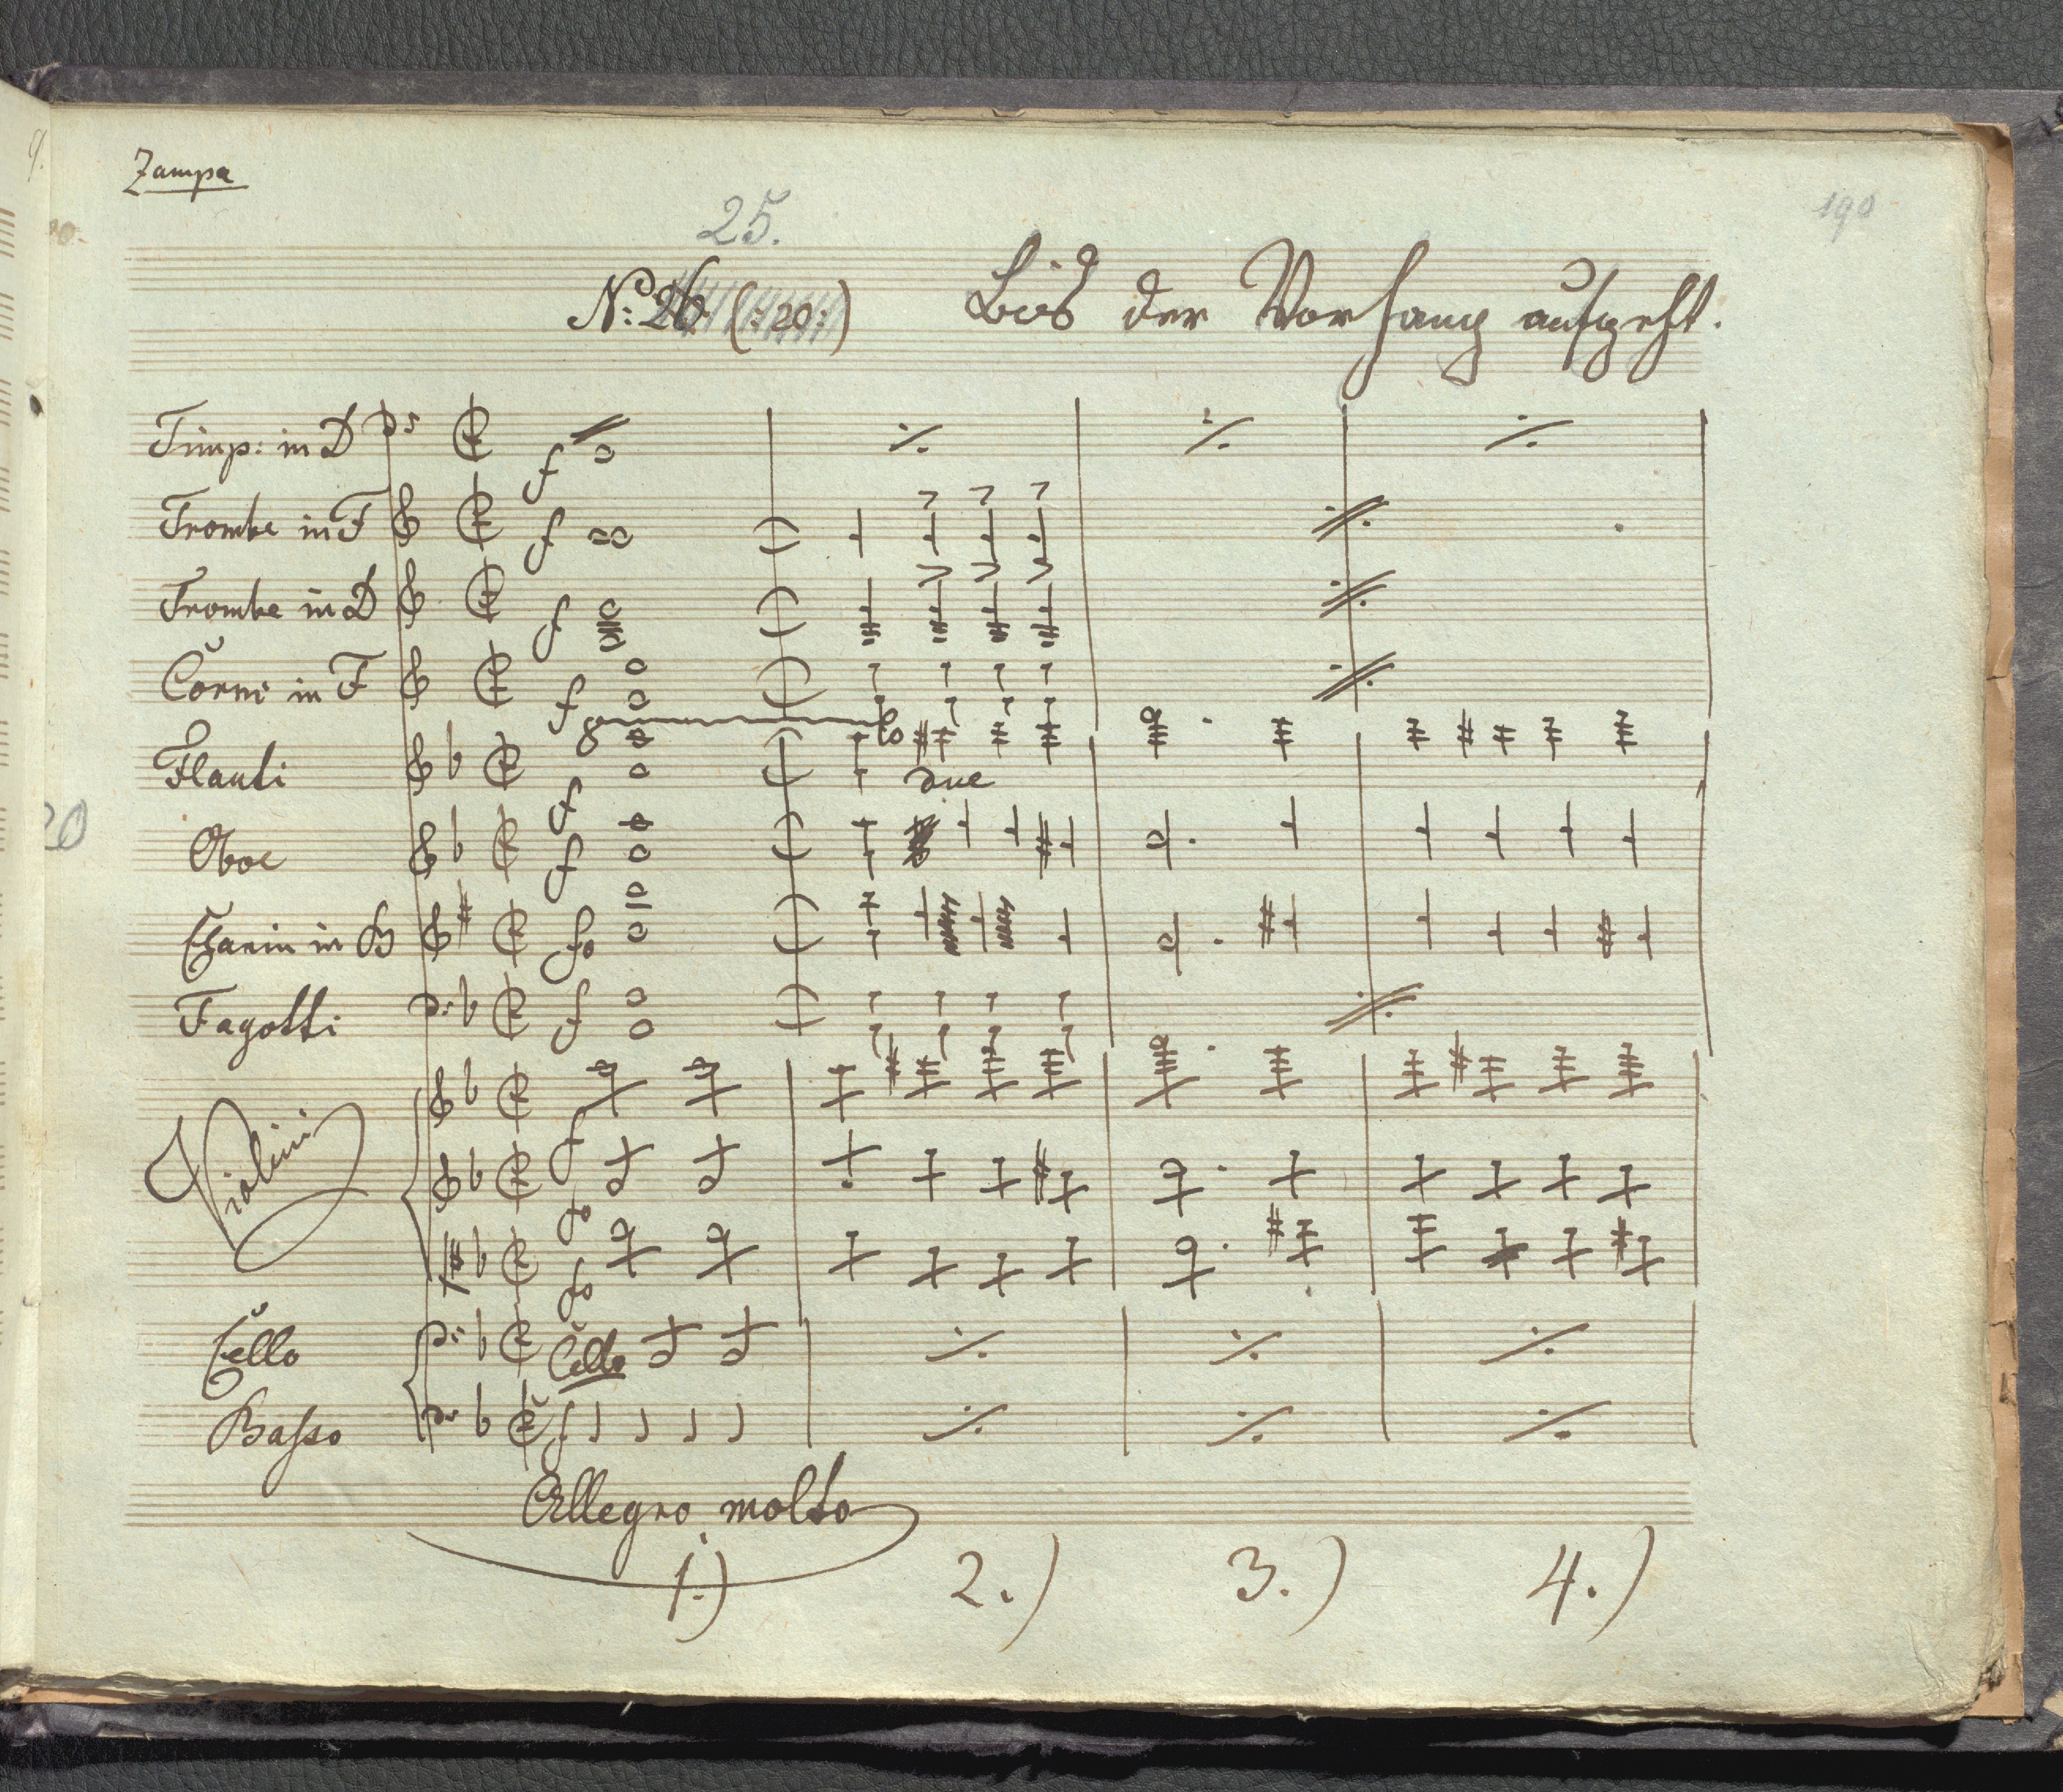 Zampa
190
25.
No: 26. (: 20 :) Bis der Vorhang aufgeht.
Timp: in D f
Trombe in F f
Trombe in D f
Corni in F f
8 lo
Flauti f due
20
Oboe f
Clarin in B fo
Fagotti f
Violini f
fo
fo
Cello Cello
Basso f
Allegro molto
1.) 2.) 3.) 4.)